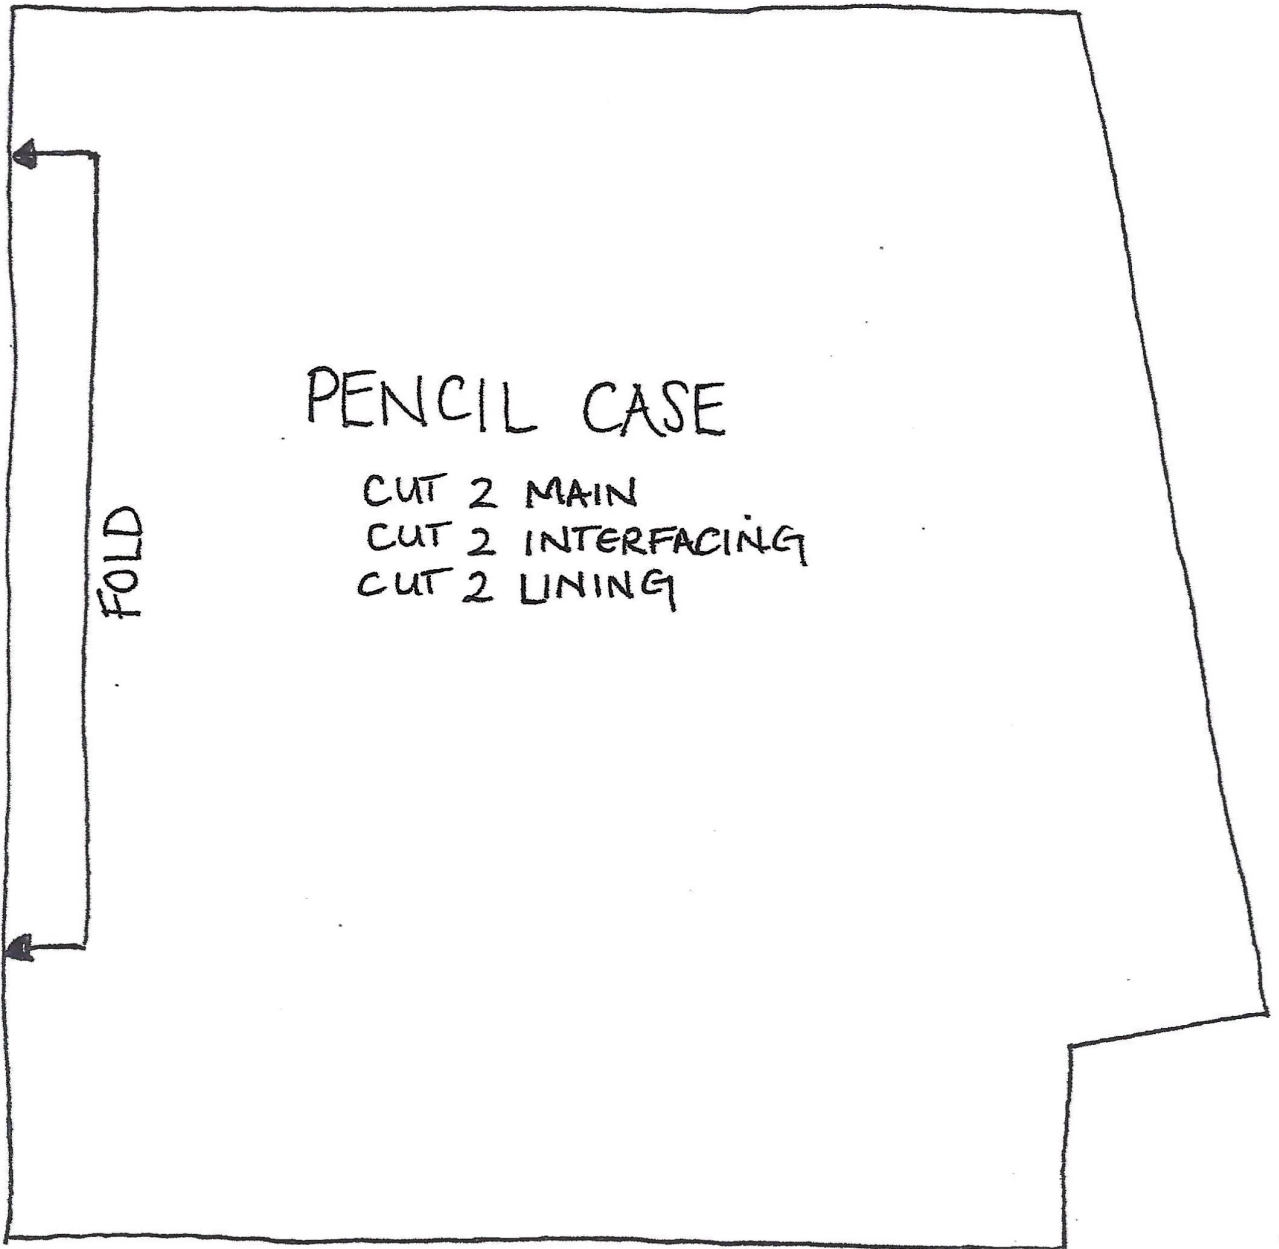 PENCIL CASE
CUT 2 MAIN
CUT 2 INTERFACING
CUT 2 LINING
FOLD